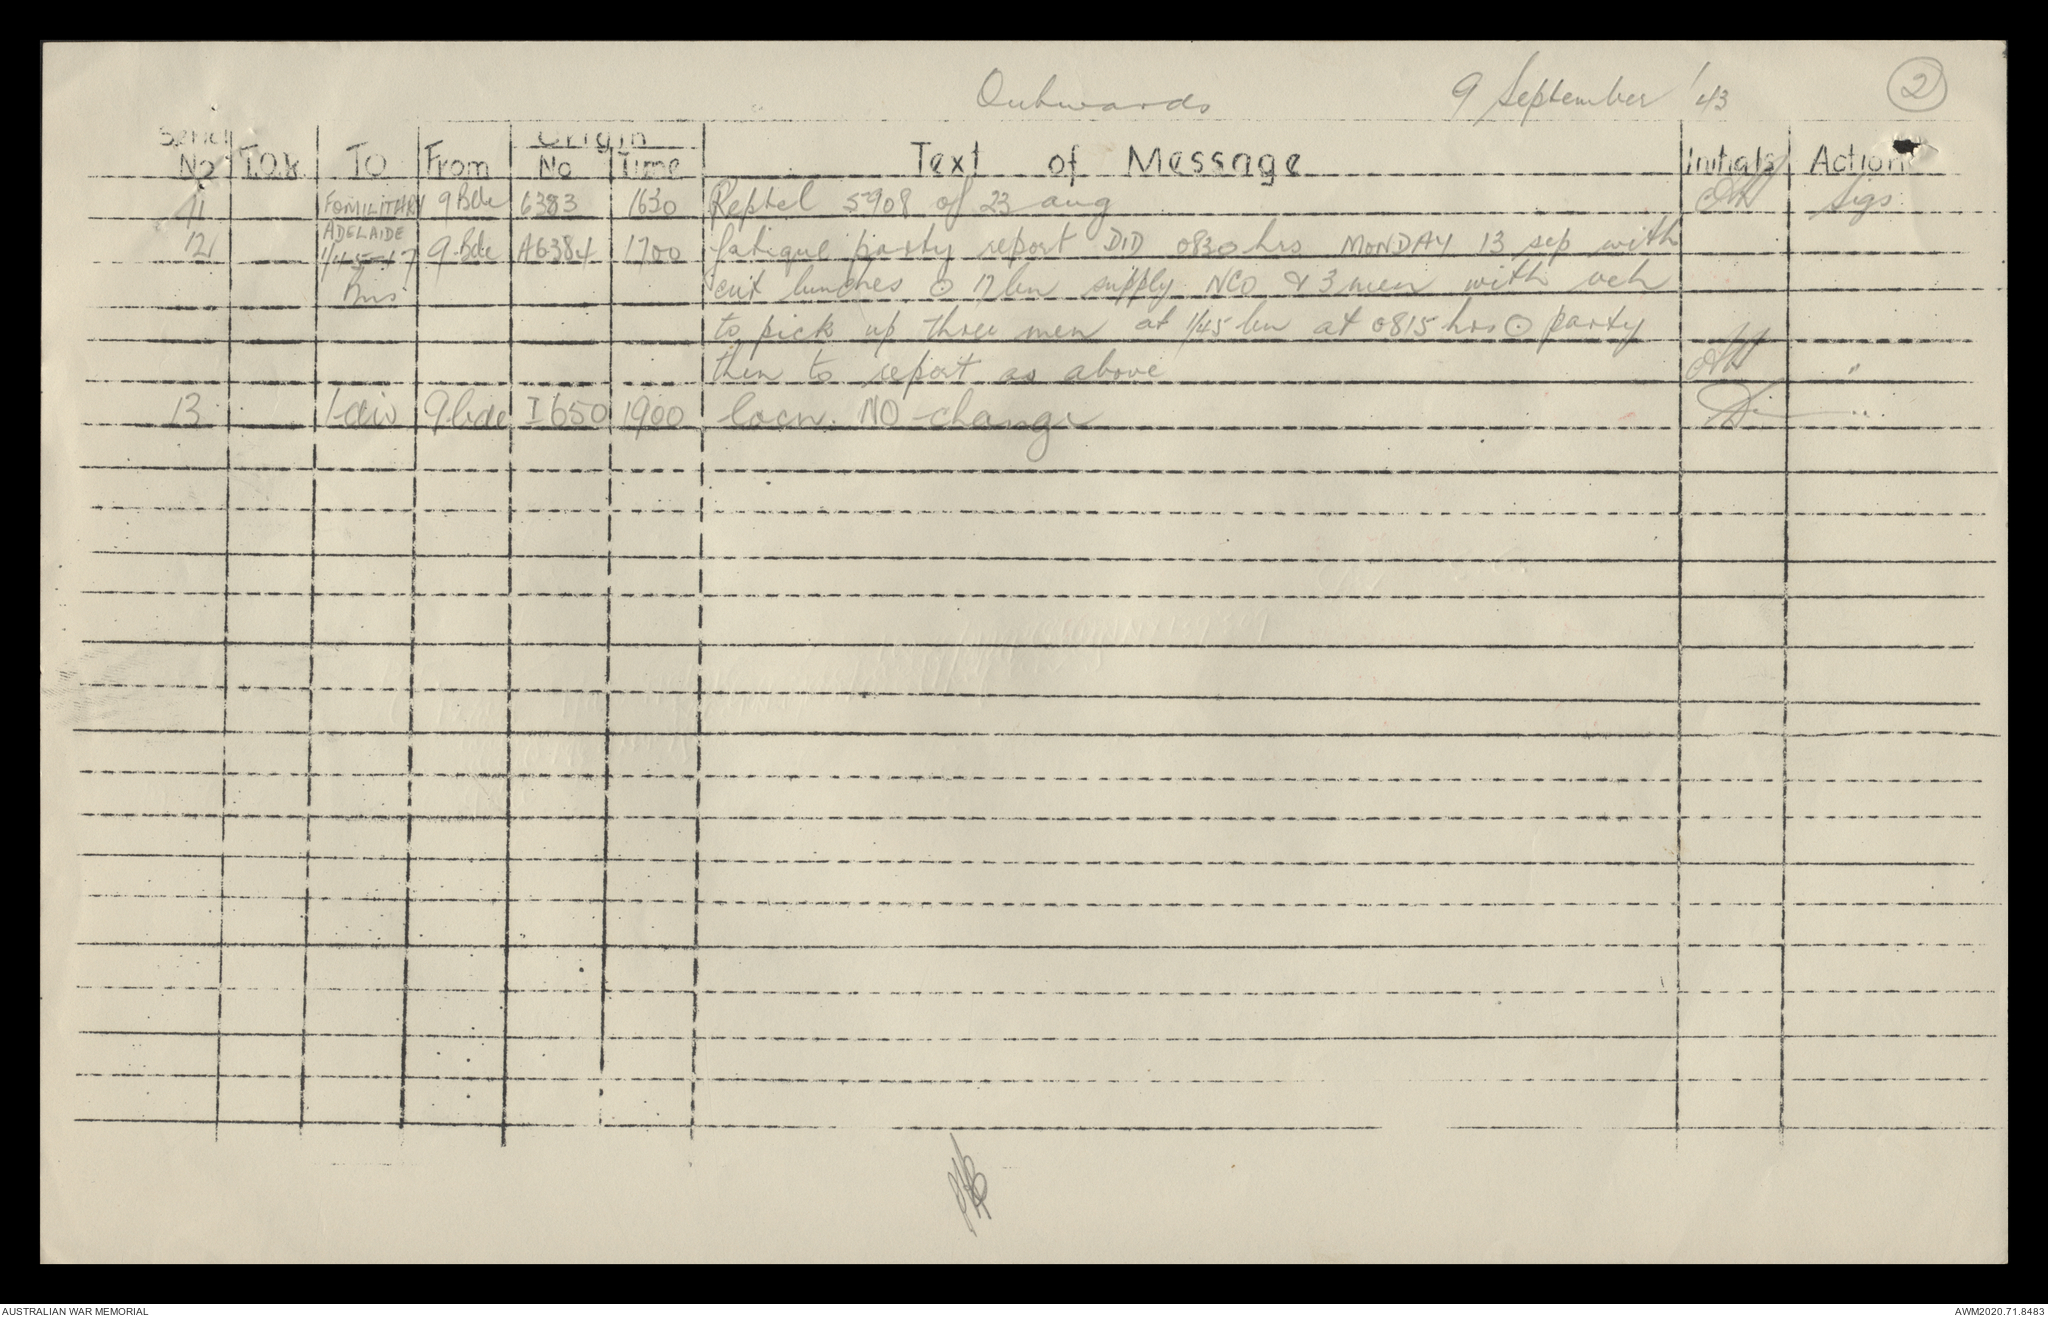 Outwards 9 September '43 2
Serial Origin
No T.O.R TO From No Time Text of Message Initials Action
11 FOMILITARY 9 Bde 6383 1630 Reptel 5908 of 23 aug Sigs
ADELAIDE
12 1/45 17 9 Bde A6384 1700 fatigue party report DID 0830 hrs MONDAY 13 sep with
Bns cut lunches ⊙ 17 bn supply NCO & 3 men with veh
to pick up three men at 1/45 bn at 0815 hrs ⊙ party
then to report as above "
13 1 div 9 bde I 650 1900 locn. NO change "
AUSTRALIAN WAR MEMORIAL AWM2020.71.8483